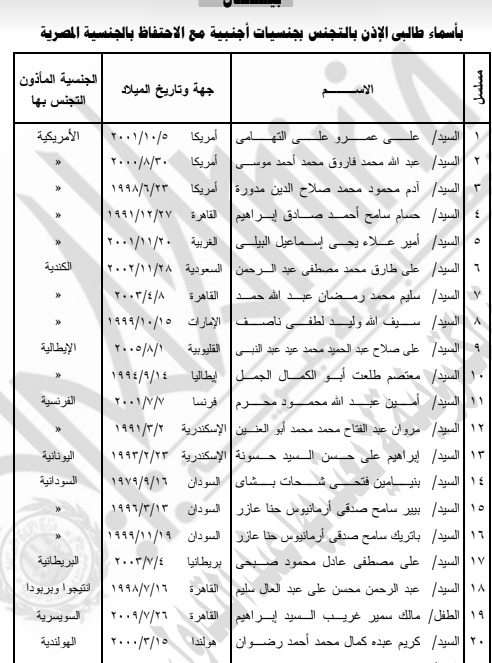 بأسماء طالبى الإذن بالتجنس بجنسيات أجنبية مع الاحتفاظ بالجنسية المصرية
مسلسل الاســـم جهة وتاريخ الميلاد الجنسية المأذون التجنس بها
١ السيد/ علـــى عمـــرو علـــى التهـــامى أمريكا ٢٠٠١/١٠/٥ الأمريكية
٢ السيد/ عبد الله محمد فاروق محمد أحمد موســى أمريكا ٢٠٠٠/٨/٣٠ »
٣ السيد/ آدم محمود محمد صلاح الدين مدورة أمريكا ١٩٩٨/٦/٢٣ »
٤ السيد/ حسام سامح أحمـــد صـــادق إبـــراهيم القاهرة ١٩٩١/١٢/٢٧ »
٥ السيد/ أمير عـــلاء يحـــى إســـماعيل البيلـــى الغربية ٢٠٠١/١١/٢٠ »
٦ السيد/ على طارق محمد مصطفى عبد الـــرحمن السعودية ٢٠٠٢/١١/٢٨ الكندية
٧ السيد/ سليم محمد رمـــضان عبـــد الله حمـــد القاهرة ٢٠٠٣/٤/٨ »
٨ السيد/ ســـيف الله وليـــد لطفـــى ناصـــف الإمارات ١٩٩٩/١٠/١٥ »
٩ السيد/ على صلاح عبد الحميد محمد عيد عبد النبـــى القليوبية ٢٠٠٥/٨/١ الإيطالية
١٠ السيد/ معتصم طلعت أبـــو الكمـــال الجمـــل إيطاليا ١٩٩٤/٩/١٤ »
١١ السيد/ أمـــين عبـــد الله محمـــود محـــرم فرنسا ٢٠٠١/٧/٧ الفرنسية
١٢ السيد/ مروان عبد الفتاح محمد محمد أبو العنـــين الإسكندرية ١٩٩١/٣/٢ »
١٣ السيد/ إبراهيم على حـــسن الـــسيد حـــسونة الإسكندرية ١٩٩٣/٢/٢٣ اليونانية
١٤ السيد/ بنيـــامين فتحـــى شـــحات بـــشاى السودان ١٩٧٩/٩/١٦ السودانية
١٥ السيد/ بيير سامح صدقى أرمانيوس حنا عازر السودان ١٩٩٦/٣/١٣ »
١٦ السيد/ باتريك سامح صدقى أرمانيوس حنا عازر السودان ١٩٩٩/١١/١٩ »
١٧ السيد/ على مصطفى عادل محمود صـــبحى بريطانيا ٢٠٠٣/٧/٤ البريطانية
١٨ السيد/ عبد الرحمن محسن على عبد العال سليم القاهرة ١٩٩٨/٧/١٦ انتيجوا وبربودا
١٩ الطفل/ مالك سمير غريـــب الـــسيد إبـــراهيم القاهرة ٢٠٠٩/٧/٢٦ السويسرية
٢٠ السيد/ كريم عبده كمال محمد أحمد رضـــوان هولندا ٢٠٠٠/٣/١٥ الهولندية